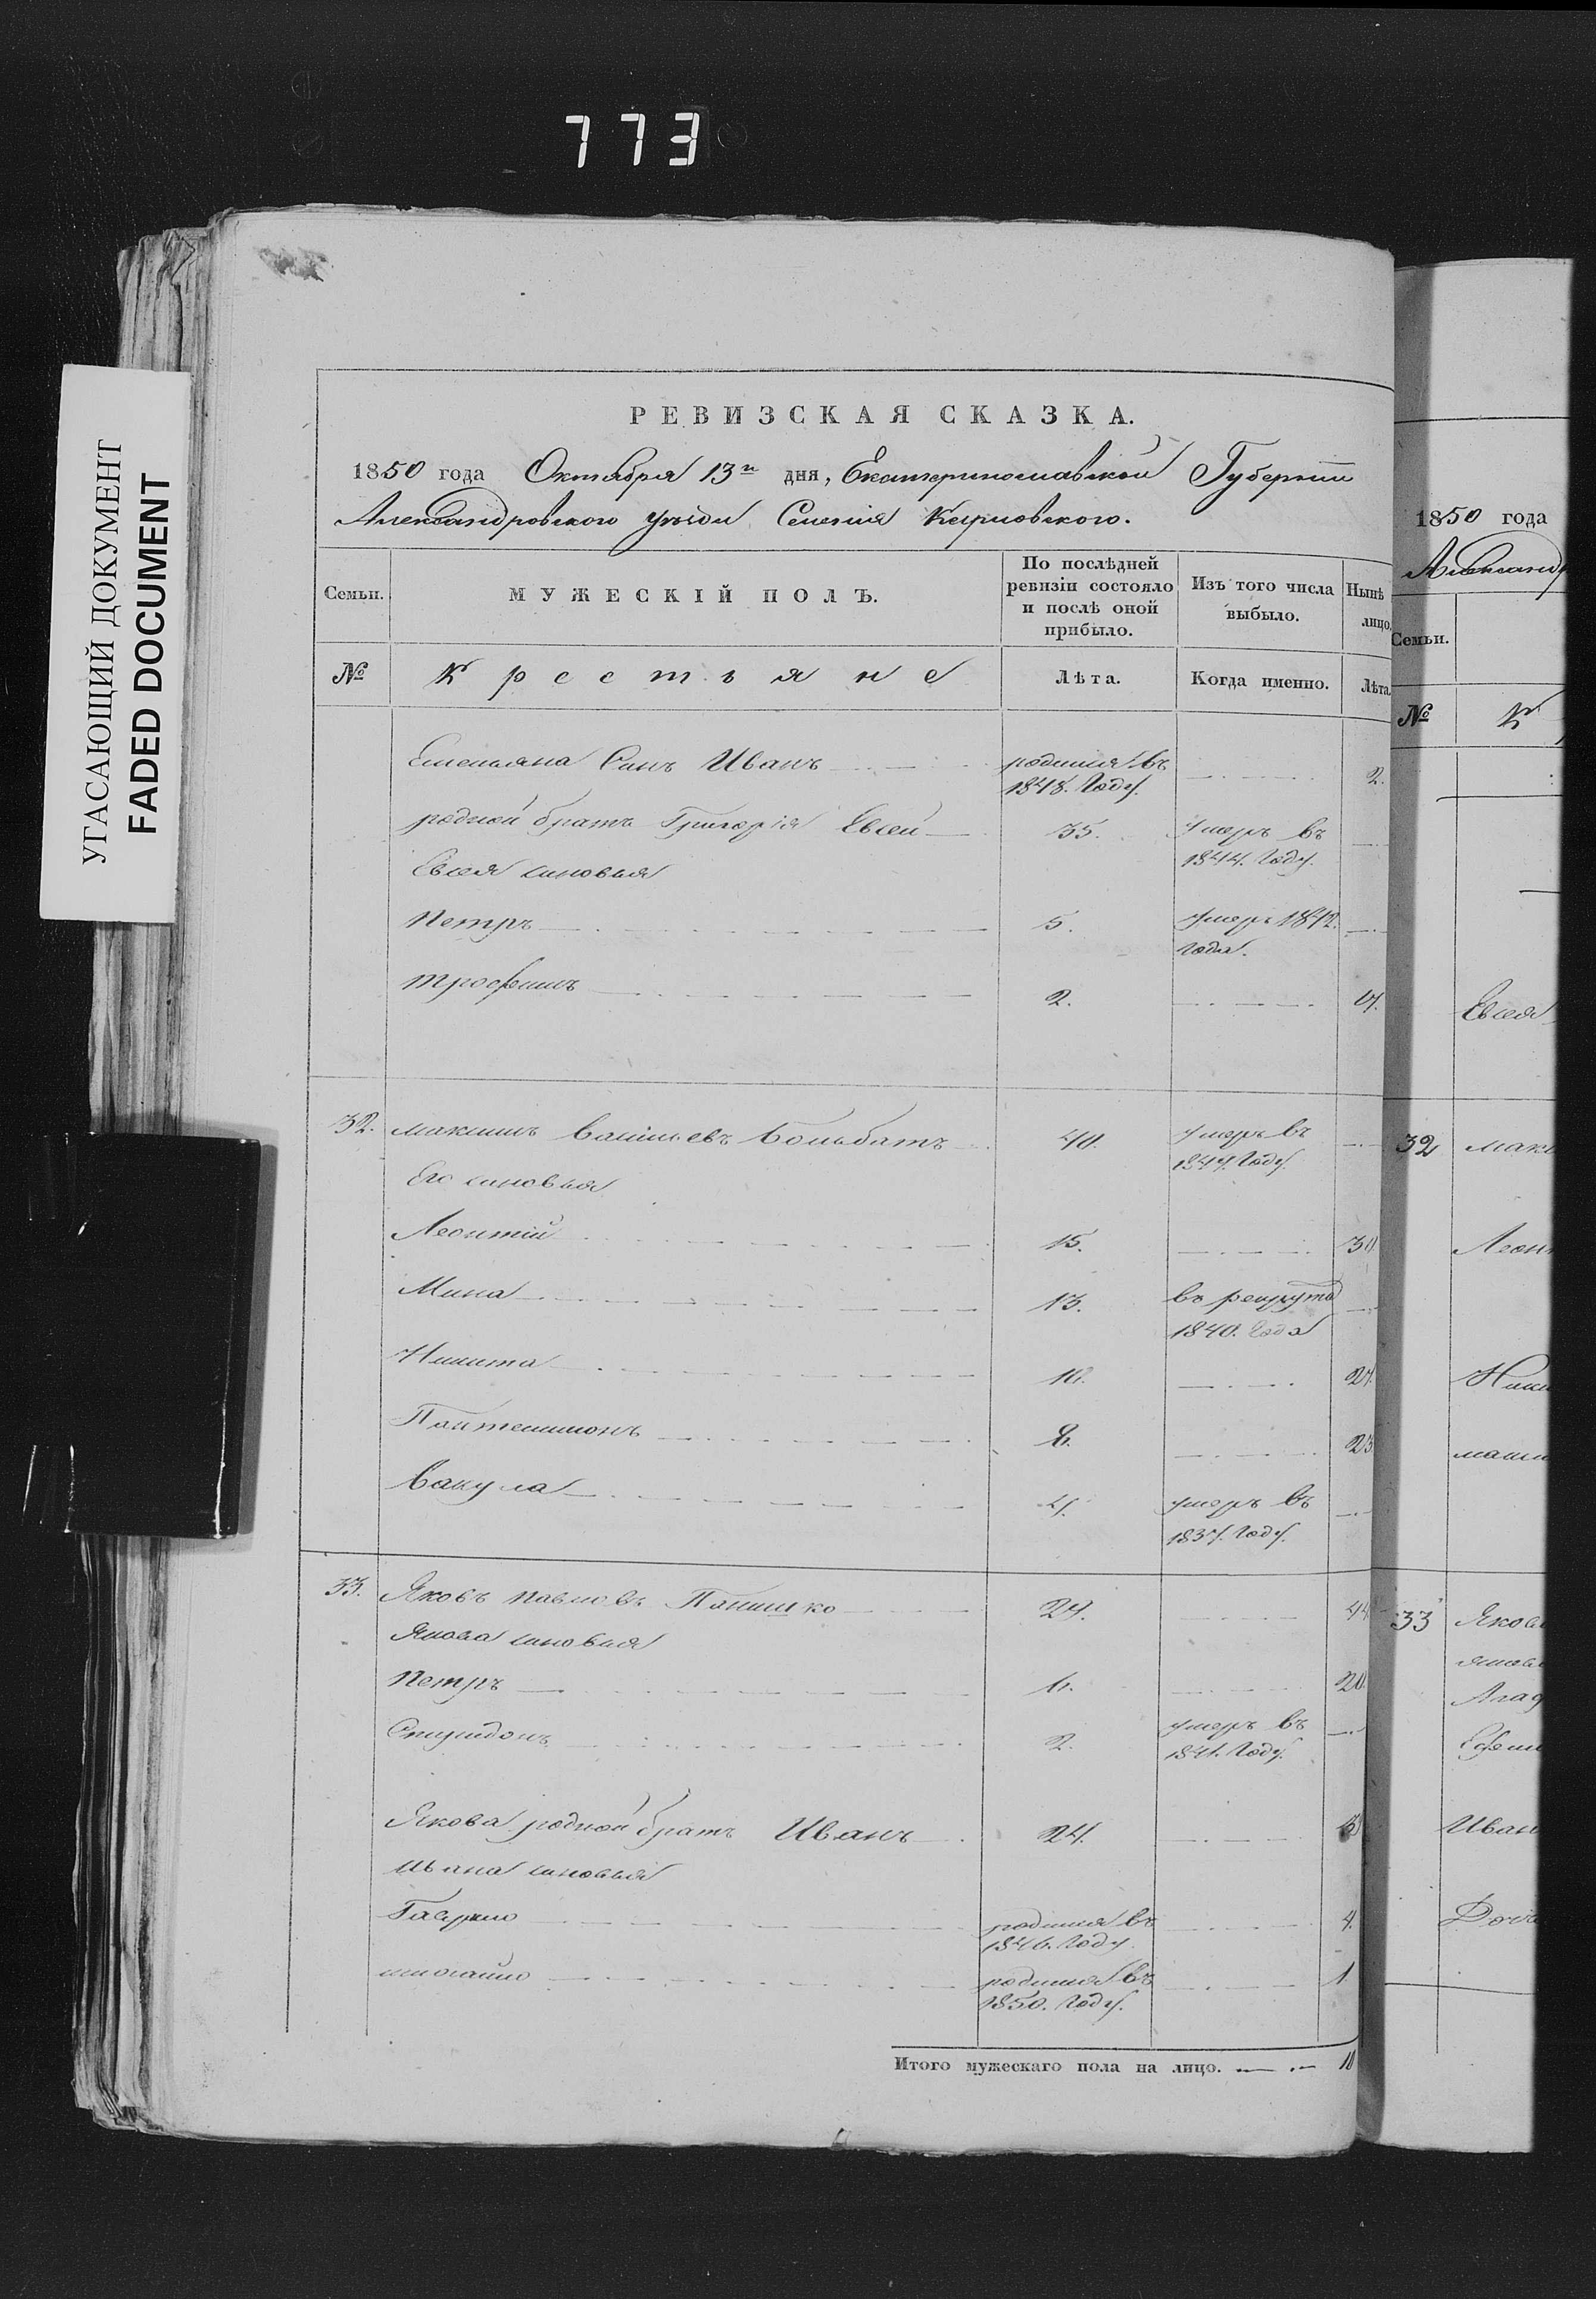 773
УГАСАЮЩИЙ ДОКУМЕНТ
FADED DOCUMENT
РЕВИЗСКАЯ СКАЗКА.
1850 года Октября 13го дня, Екатеринославской Губернии
Александровского уезда Селения
Семьи. МУЖЕСКІЙ ПОЛЪ. По послѣдней ревизіи состояло и послѣ оной прибыло. Изъ того числа выбыло. Нынѣ лицо.
№ Крестьяне Лѣта. Когда именно. Лѣта
Емельяна Синъ Иванъ родился въ 1848. Году. 2.
родной братъ Григорія Евсей 35. умеръ въ 1844. Году.
Евсея синовья
Петръ 5. умеръ 1842. Года.
Трофимъ 2. 17.
32. Максимъ Васильевъ 40. умеръ въ Году.
Его синовья
Леонтій 15. 30
Мина 13. въ рекруты 1840. Года
Никита
Пантелимонъ 8. 23
Вакула 4. умеръ въ 1837. Году.
33. Яковъ Павловъ 44
Якова синовья
Петръ 20
Спиридонъ 2. умеръ въ 1841. Году.
Якова родной братъ Иванъ 24.
Ивана синовья
Гаврило родился въ 1846. Году 4.
родился въ 1850. Году. 1
Итого мужескаго пола на лицо. 10
1850 года
Александ
Семьи.
№ К
Евсея
32 Мак
Леон
Ник
33 Яков
Иван